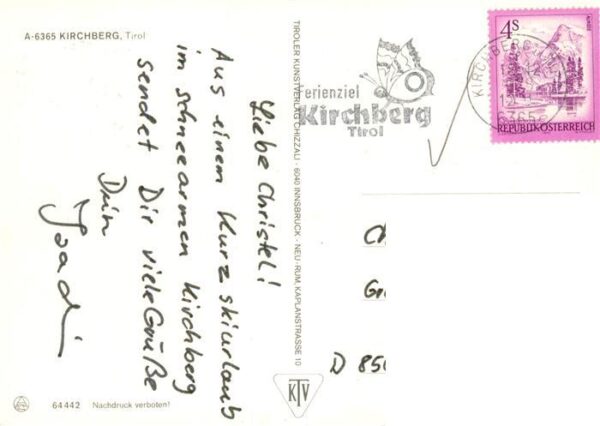 A-6365 KIRCHBERG, Tirol
Liebe Christel!
Aus einem Kurzskiurlaub
im schneearmen Kirchberg
sendet Dir viele Grüße
Dein
64442 Nachdruck verboten!
TIROLER KUNSTVERLAG CHIZZALI · 6040 INNSBRUCK - NEU-RUM, KAPLANSTRASSE 10
KTV
erienziel
Kirchberg
Tirol
KIRCHBERG
6365
4S
REPUBLIK ÖSTERREICH
D 850